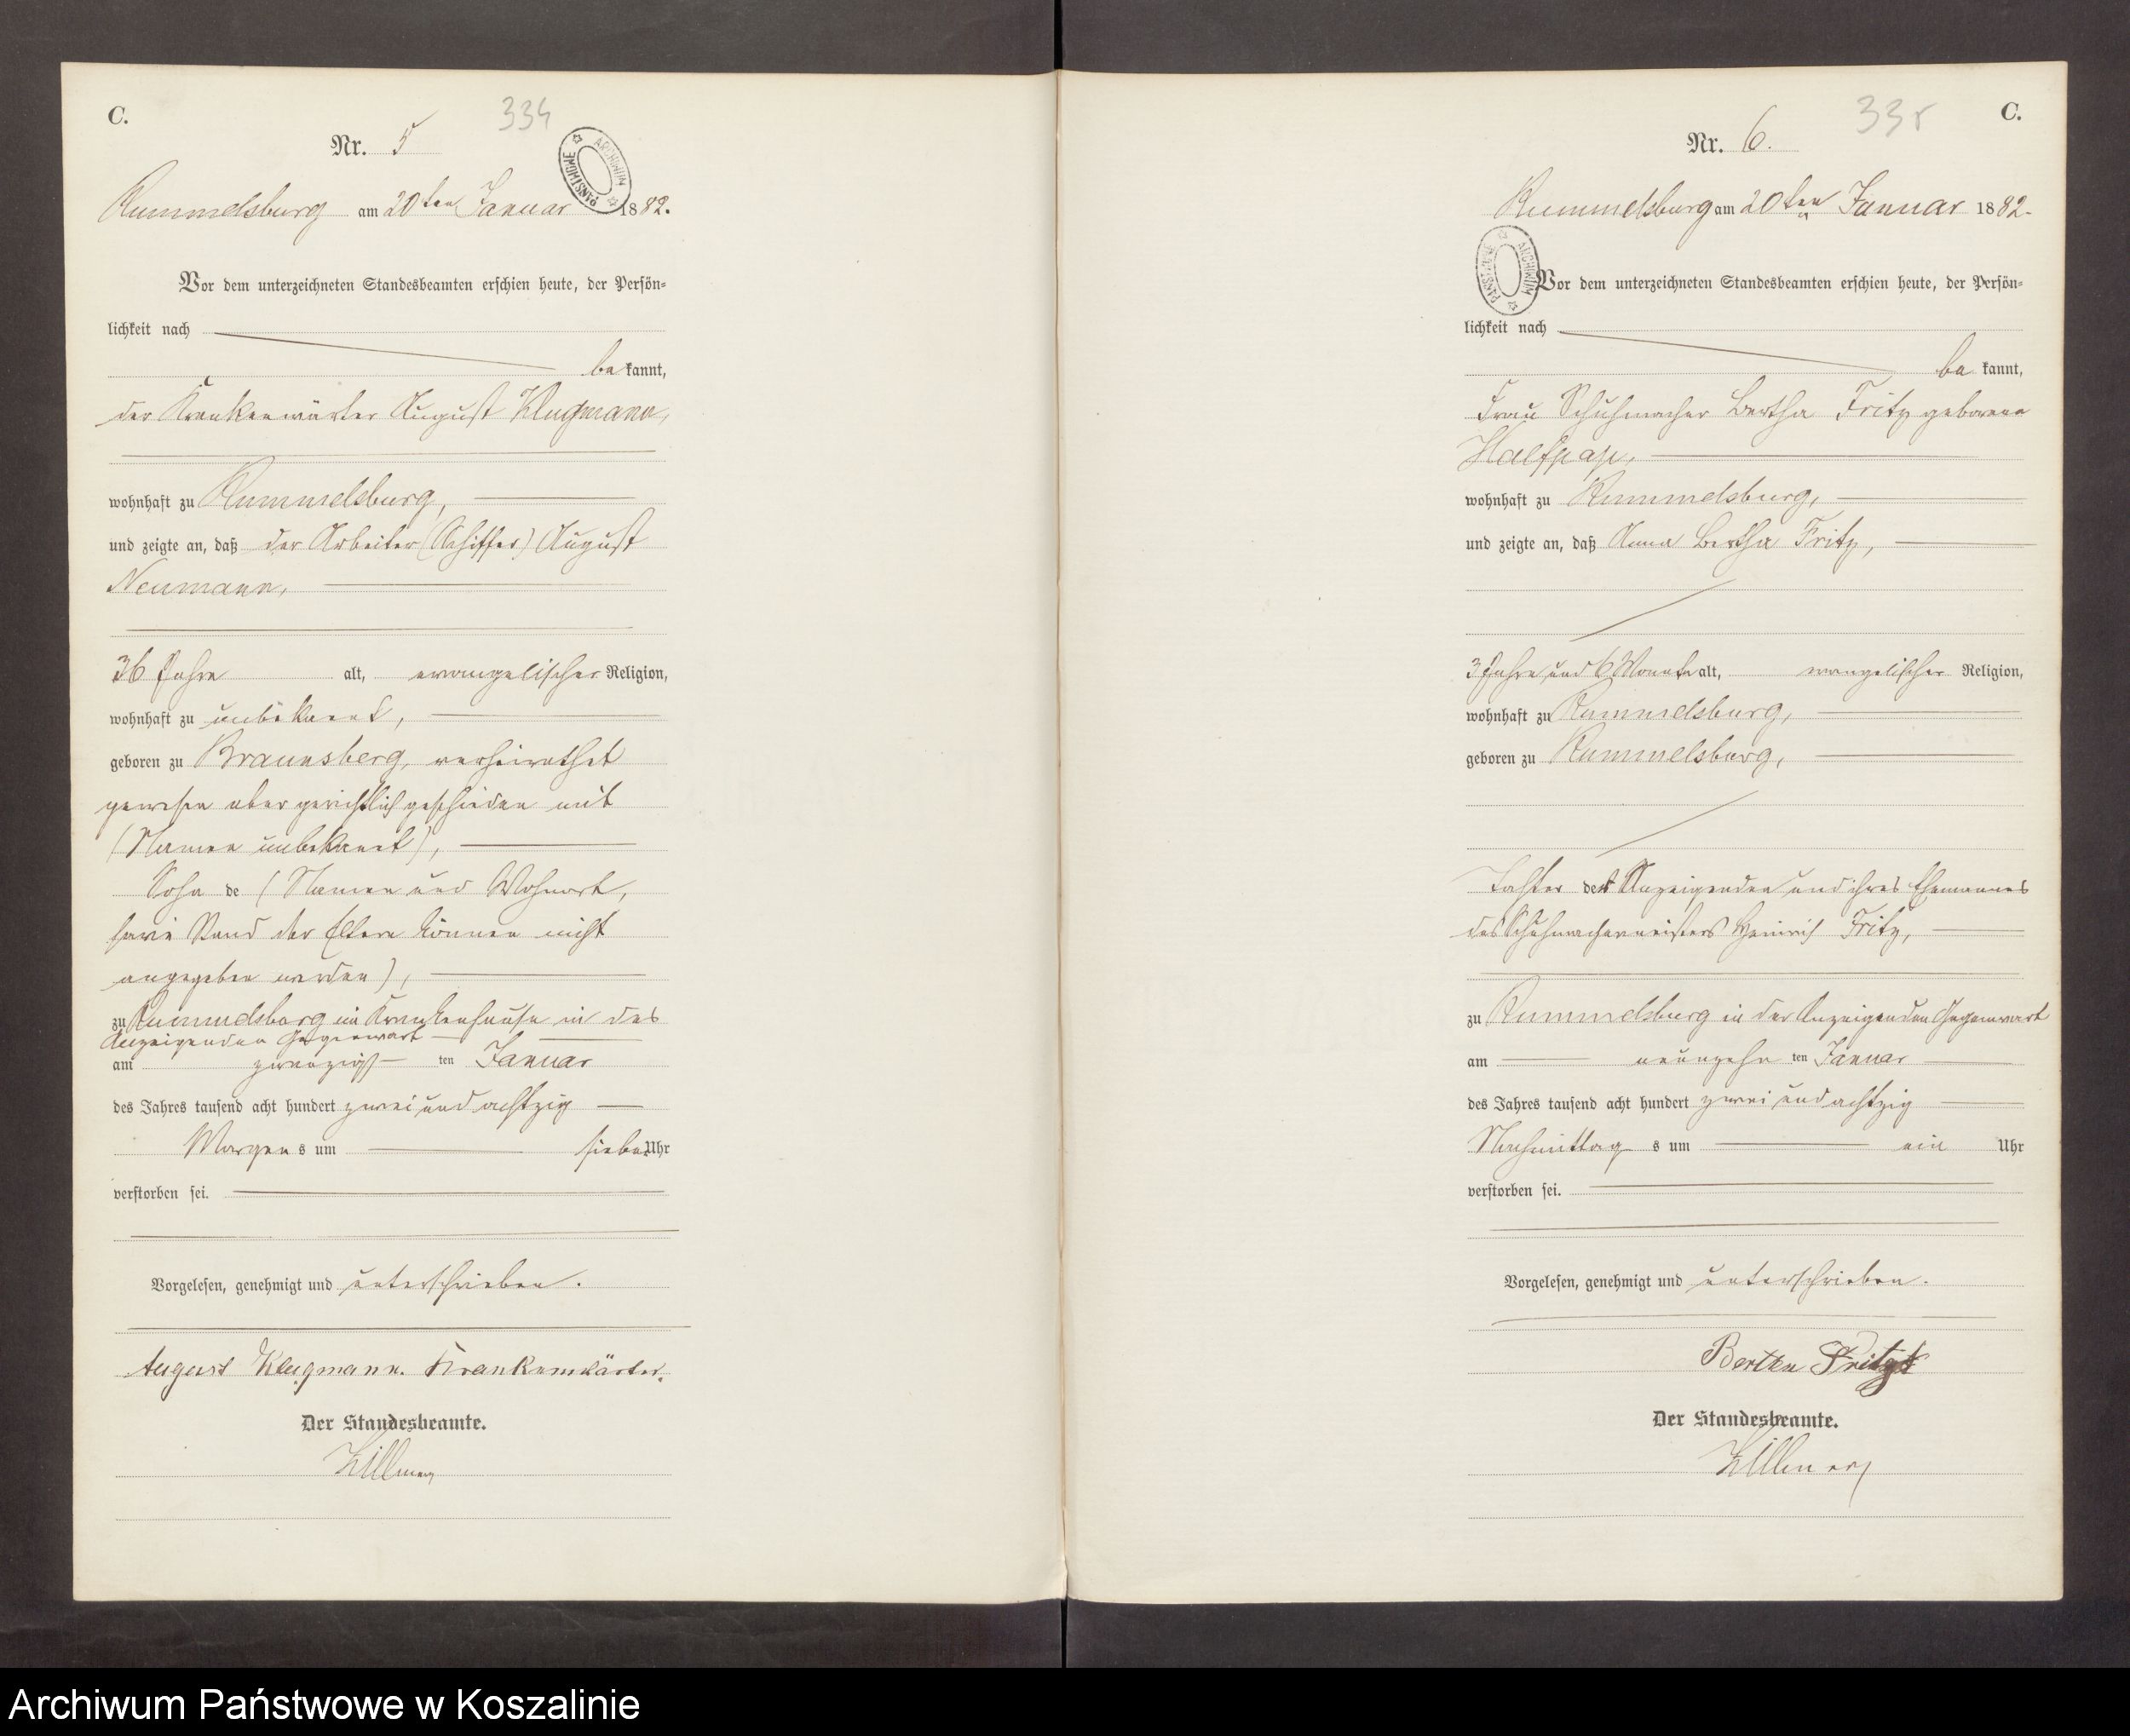 C.
334
Nr. 5
ARCHIWUM PAŃSTWOWE
Rummelsburg am 20ten Januar 1882.
Vor dem unterzeichneten Standesbeamten erschien heute, der Persön-
lichkeit nach
bekannt,
der Krankenwärter August Klugmann,
wohnhaft zu Rummelsburg,
und zeigte an, daß der Arbeiter (Schiffer) August
Neumann,
36 Jahre alt, evangelischer Religion,
wohnhaft zu unbekannt,
geboren zu Braunsberg, verheirathet
gewesen aber gerichtlich geschieden mit
(Namen unbekannt),
Sohn de (Namen und Wohnort,
sowie Stand der Eltern können nicht
angegeben werden),
zu Rummelsburg im Krankenhause in des
Anzeigenden Gegenwart
am zwanzigsten Januar
des Jahres tausend acht hundert zwei und achtzig
Morgens um sieben Uhr
verstorben sei.
Vorgelesen, genehmigt und unterschrieben.
August Klugmann. Krankenwärter.
Der Standesbeamte.
C.
335
Nr. 6.
ARCHIWUM PAŃSTWOWE
Rummelsburg am 20ten Januar 1882.
Vor dem unterzeichneten Standesbeamten erschien heute, der Persön-
lichkeit nach
bekannt,
Frau Schuhmacher Bertha Fritz geborene
Halfpap,
wohnhaft zu Rummelsburg,
und zeigte an, daß Anna Bertha Fritz,
3 Jahre und 6 Monate alt, evangelischer Religion,
wohnhaft zu Rummelsburg,
geboren zu Rummelsburg,
Tochter der Anzeigenden und ihres Ehemannes
des Schuhmachermeisters Heinrich Fritz,
zu Rummelsburg in der Anzeigenden Gegenwart
am neunzehnten Januar
des Jahres tausend acht hundert zwei und achtzig
Nachmittags um ein Uhr
verstorben sei.
Vorgelesen, genehmigt und unterschrieben.
Bertha Fritz
Der Standesbeamte.
Archiwum Państwowe w Koszalinie